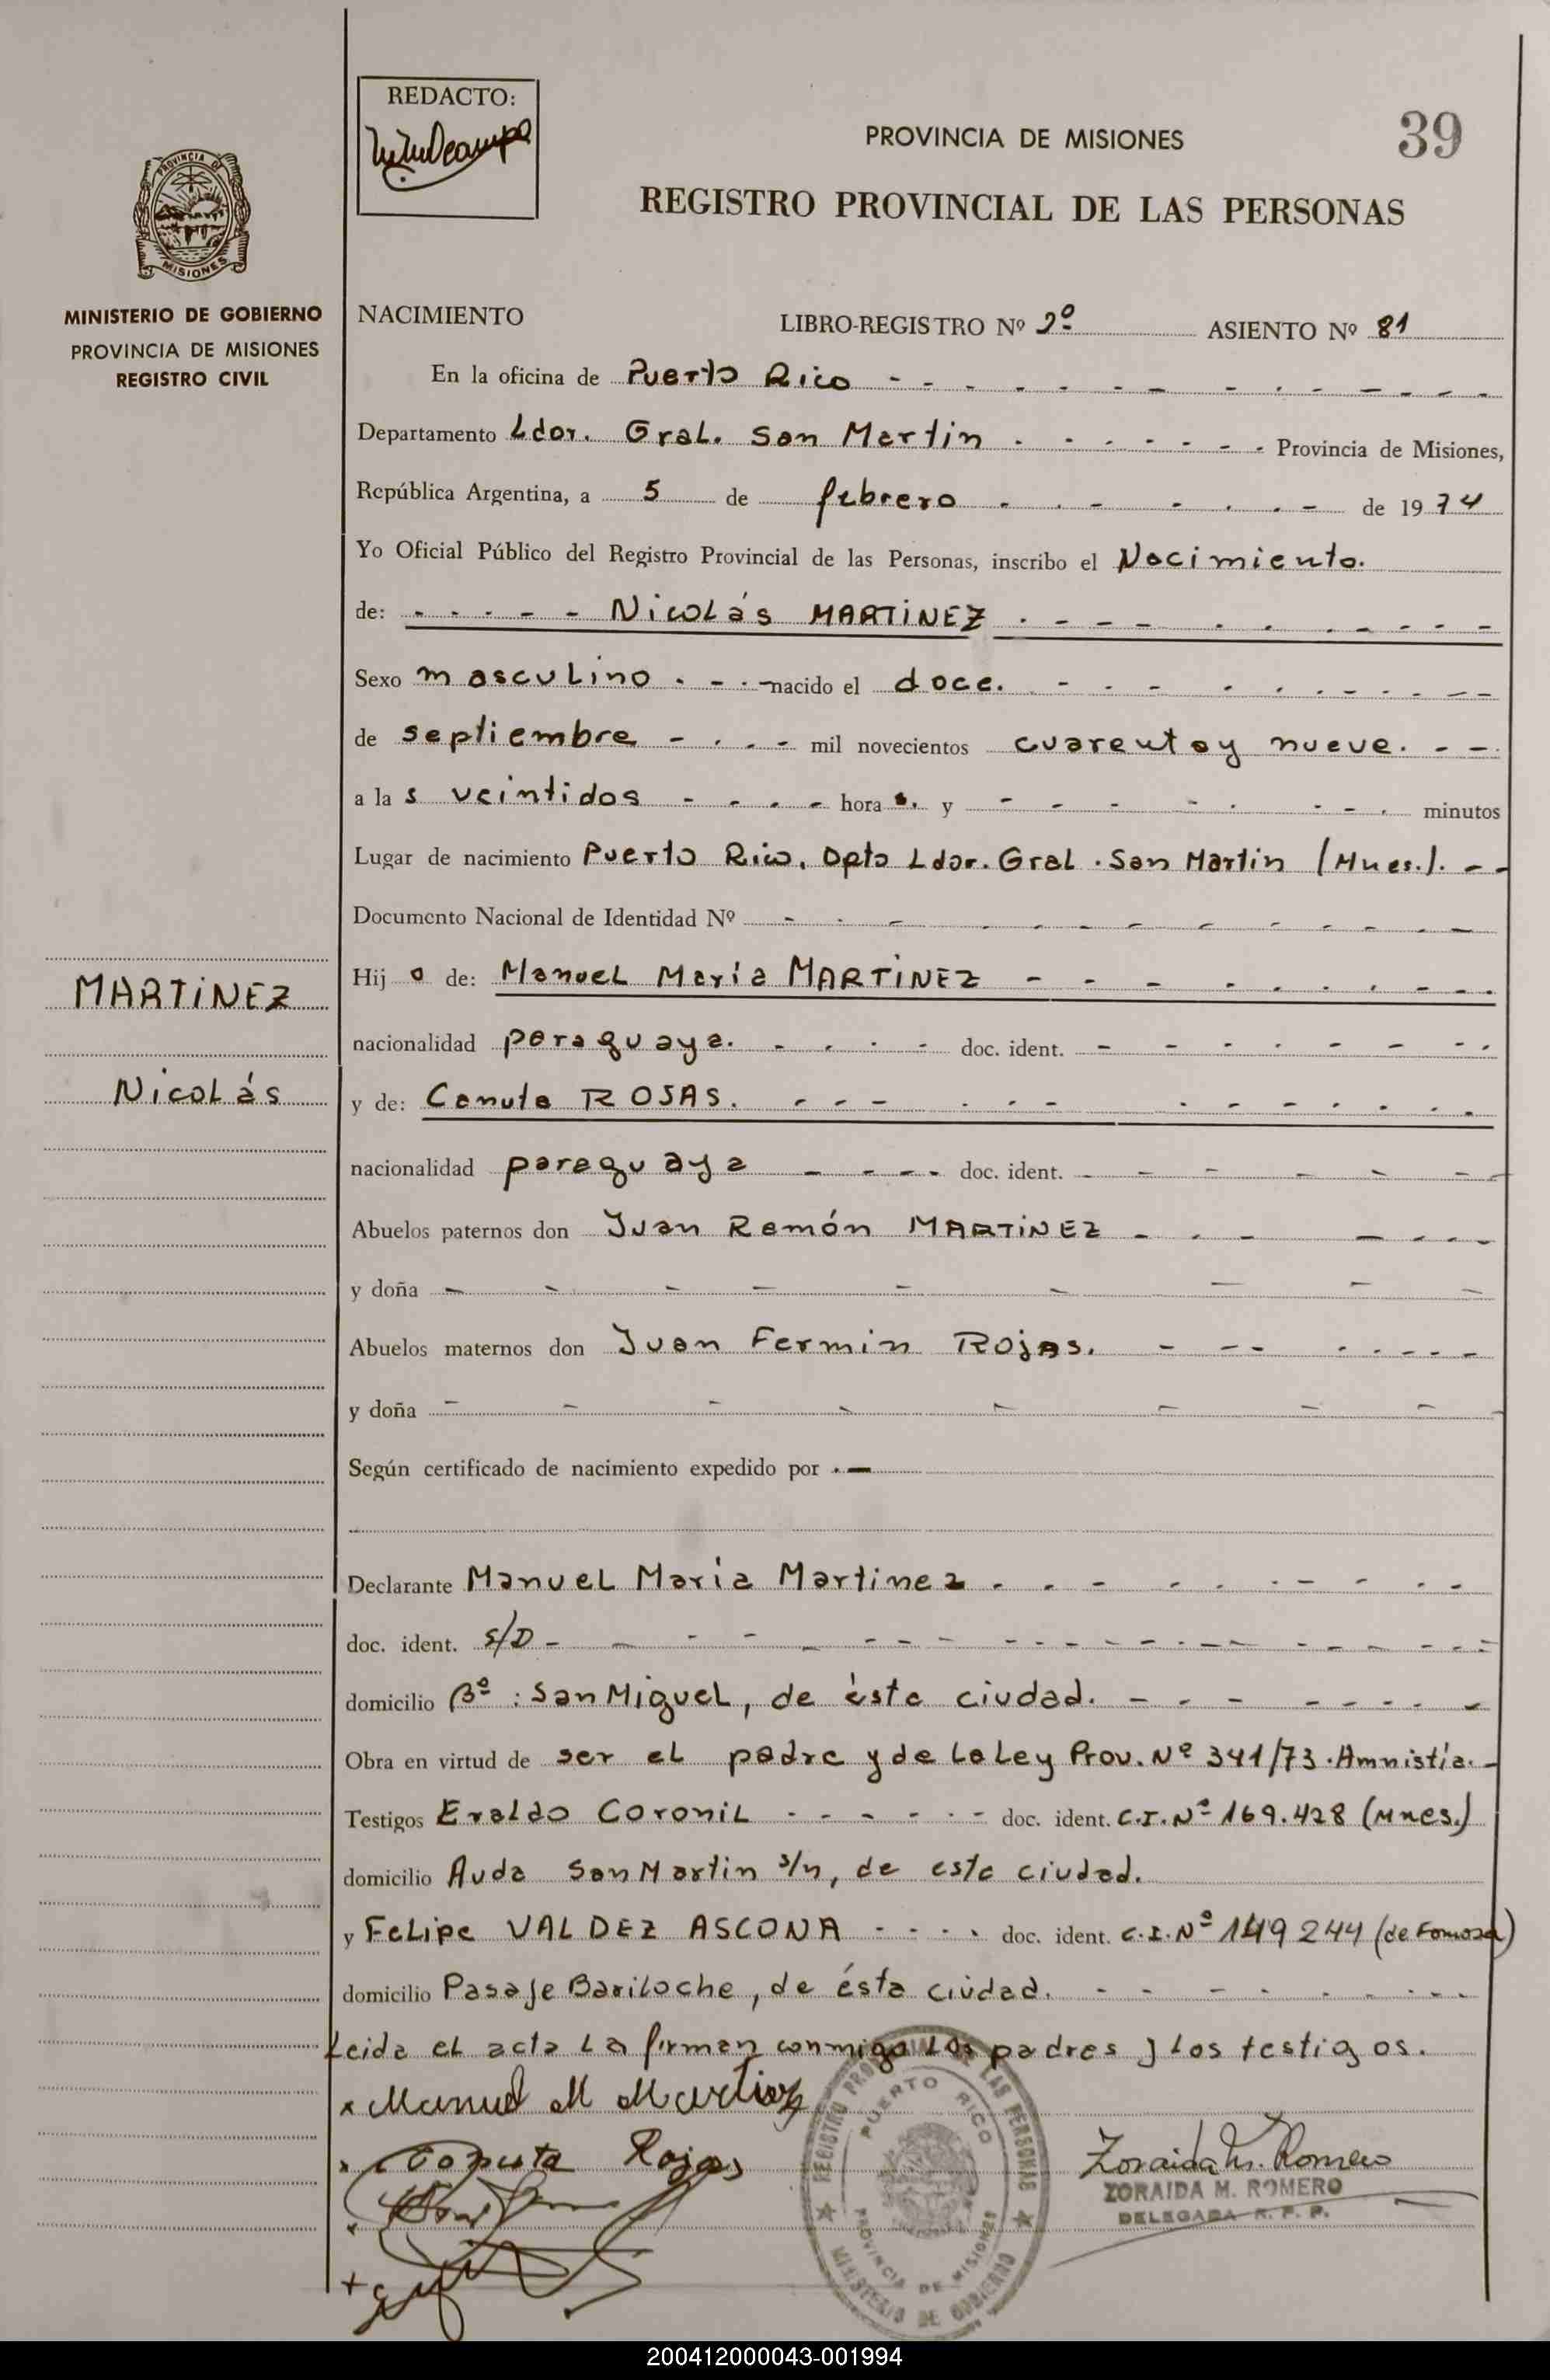 REDACTO:
39
PROVINCIA DE MISIONES
REGISTRO PROVINCIAL DE LAS PERSONAS
PROVINCIA DE
MISIONES
MINISTERIO DE GOBIERNO
PROVINCIA DE MISIONES
REGISTRO CIVIL
NACIMIENTO
LIBRO-REGISTRO Nº 2º ASIENTO Nº 81
En la oficina de Puerto Rico
Departamento Ldor. Gral. San Martin Provincia de Misiones,
República Argentina, a 5 de febrero de 1974
Yo Oficial Público del Registro Provincial de las Personas, inscribo el Nacimiento.
de: Nicolás MARTINEZ
Sexo masculino nacido el doce.
de septiembre mil novecientos cuarenta y nueve.
a las veintidos horas. y minutos
Lugar de nacimiento Puerto Rico, Dpto Ldor. Gral. San Martin (Mnes.).
Documento Nacional de Identidad Nº
Hijo de: Manuel María MARTINEZ
MARTINEZ
nacionalidad paraguaya. doc. ident.
Nicolás
y de: Canuta ROJAS.
nacionalidad paraguaya doc. ident.
Abuelos paternos don Juan Ramón MARTINEZ
y doña
Abuelos maternos don Juan Fermin Rojas.
y doña
Según certificado de nacimiento expedido por
Declarante Manuel María Martinez
doc. ident. S/D
domicilio Bº: San Miguel, de ésta ciudad.
Obra en virtud de ser el padre y de la Ley Prov. Nº 341/73. Amnistía.
Testigos Eraldo Coronil doc. ident. C.I. Nº 169.428 (Mnes.)
domicilio Avda San Martin s/n, de esta ciudad.
y Felipe VALDEZ ASCONA doc. ident. C.I. Nº 149244 (de Fomosa)
domicilio Pasaje Bariloche, de ésta ciudad.
Leida el acta la firman conmigo los padres y los testigos.
Manuel M Martinez
Rojas
Zoraida M. Romero
ZORAIDA M. ROMERO
DELEGADA R. P. P.
REGISTRO PROVINCIAL DE LAS PERSONAS
PUERTO RICO
PROVINCIA DE MISIONES
MINISTERIO DE GOBIERNO
200412000043-001994